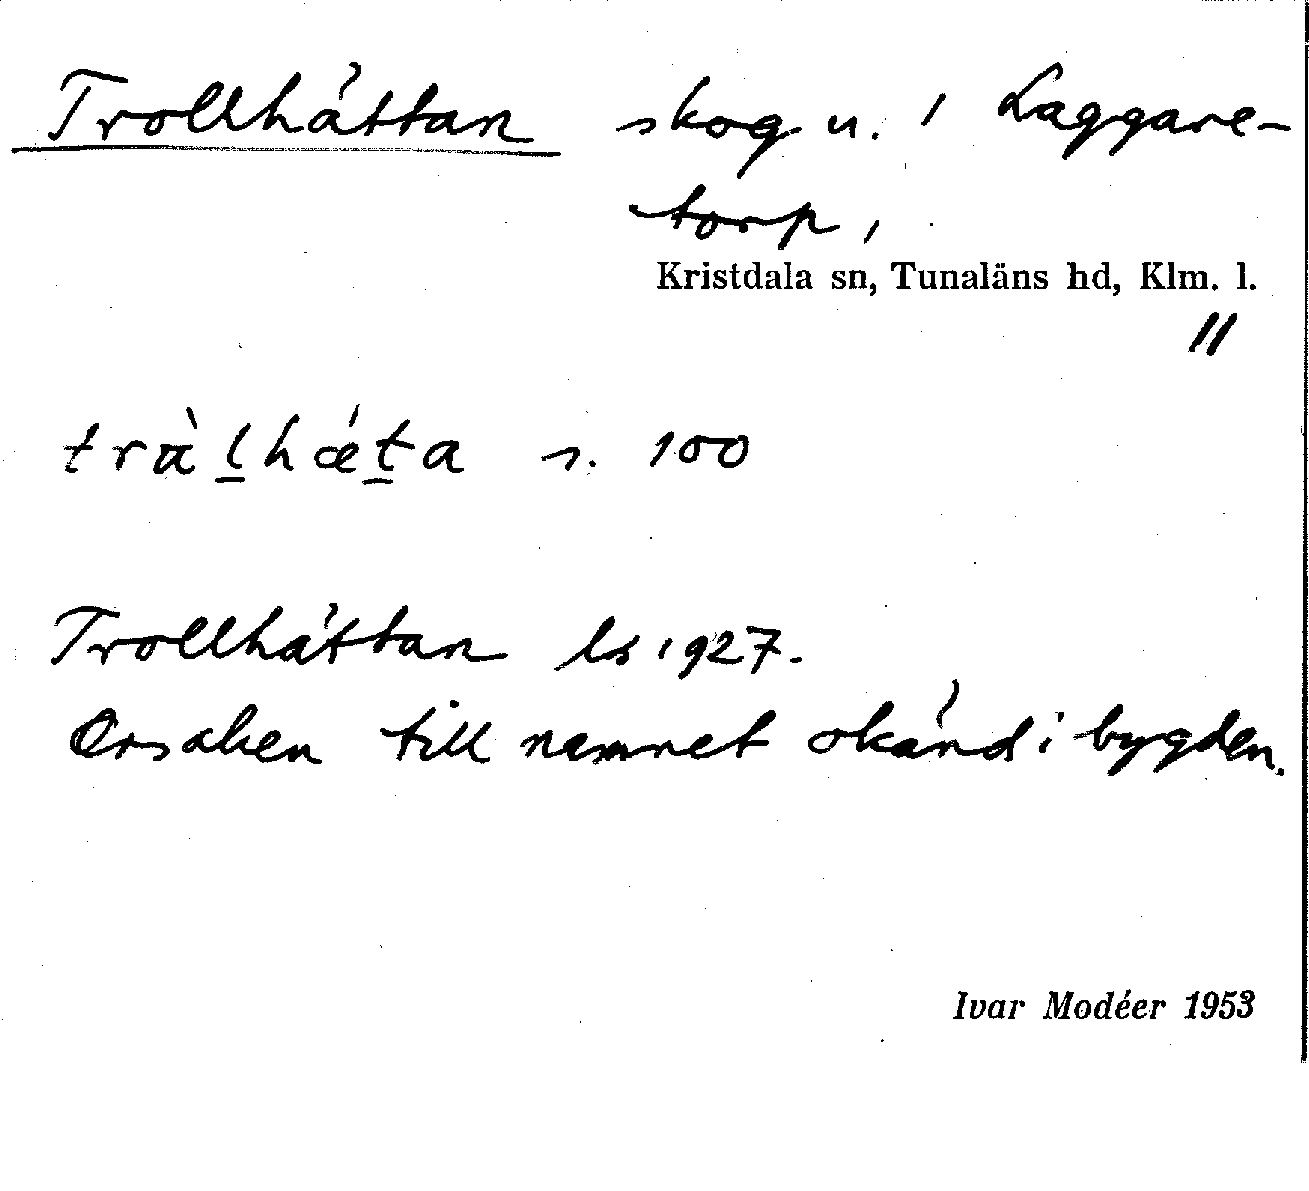 Trollhättan skog u. / Laggare-
torp,
Kristdala sn, Tunaläns hd, Klm. l.
"
tràl̲hǽt̲a s. 100
Trollhättan ls 1927.
Orsaken till namnet okänd i bygden.
Ivar Modéer 1953